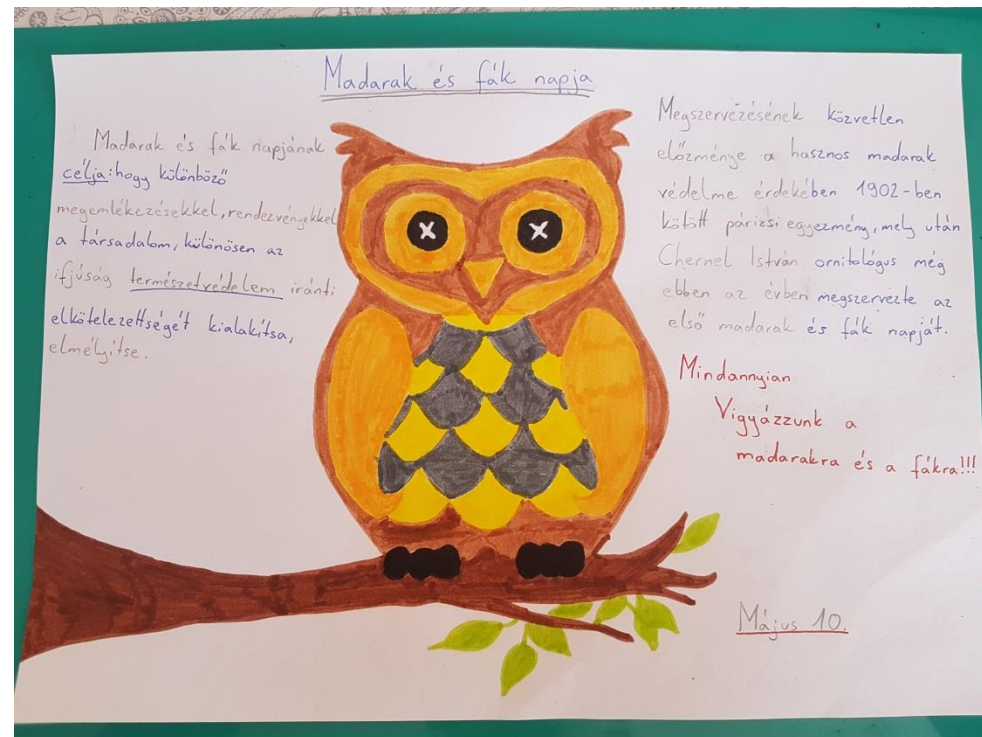 Madarak és fák napja
Madarak és fák napjának
célja: hogy különböző
megemlékezésekkel, rendezvényekkel
a társadalom, különösen az
ifjúság természetvédelem iránti
elkötelezettségét kialakítsa,
elmélyítse.
Megszervezésének közvetlen
előzménye a hasznos madarak
védelme érdekében 1902-ben
kötött párizsi egyezmény, mely után
Chernel István ornitológus még
ebben az évben megszervezte az
első madarak és fák napját.
Mindannyian
Vigyázzunk a
madarakra és a fákra!!!
Május 10.